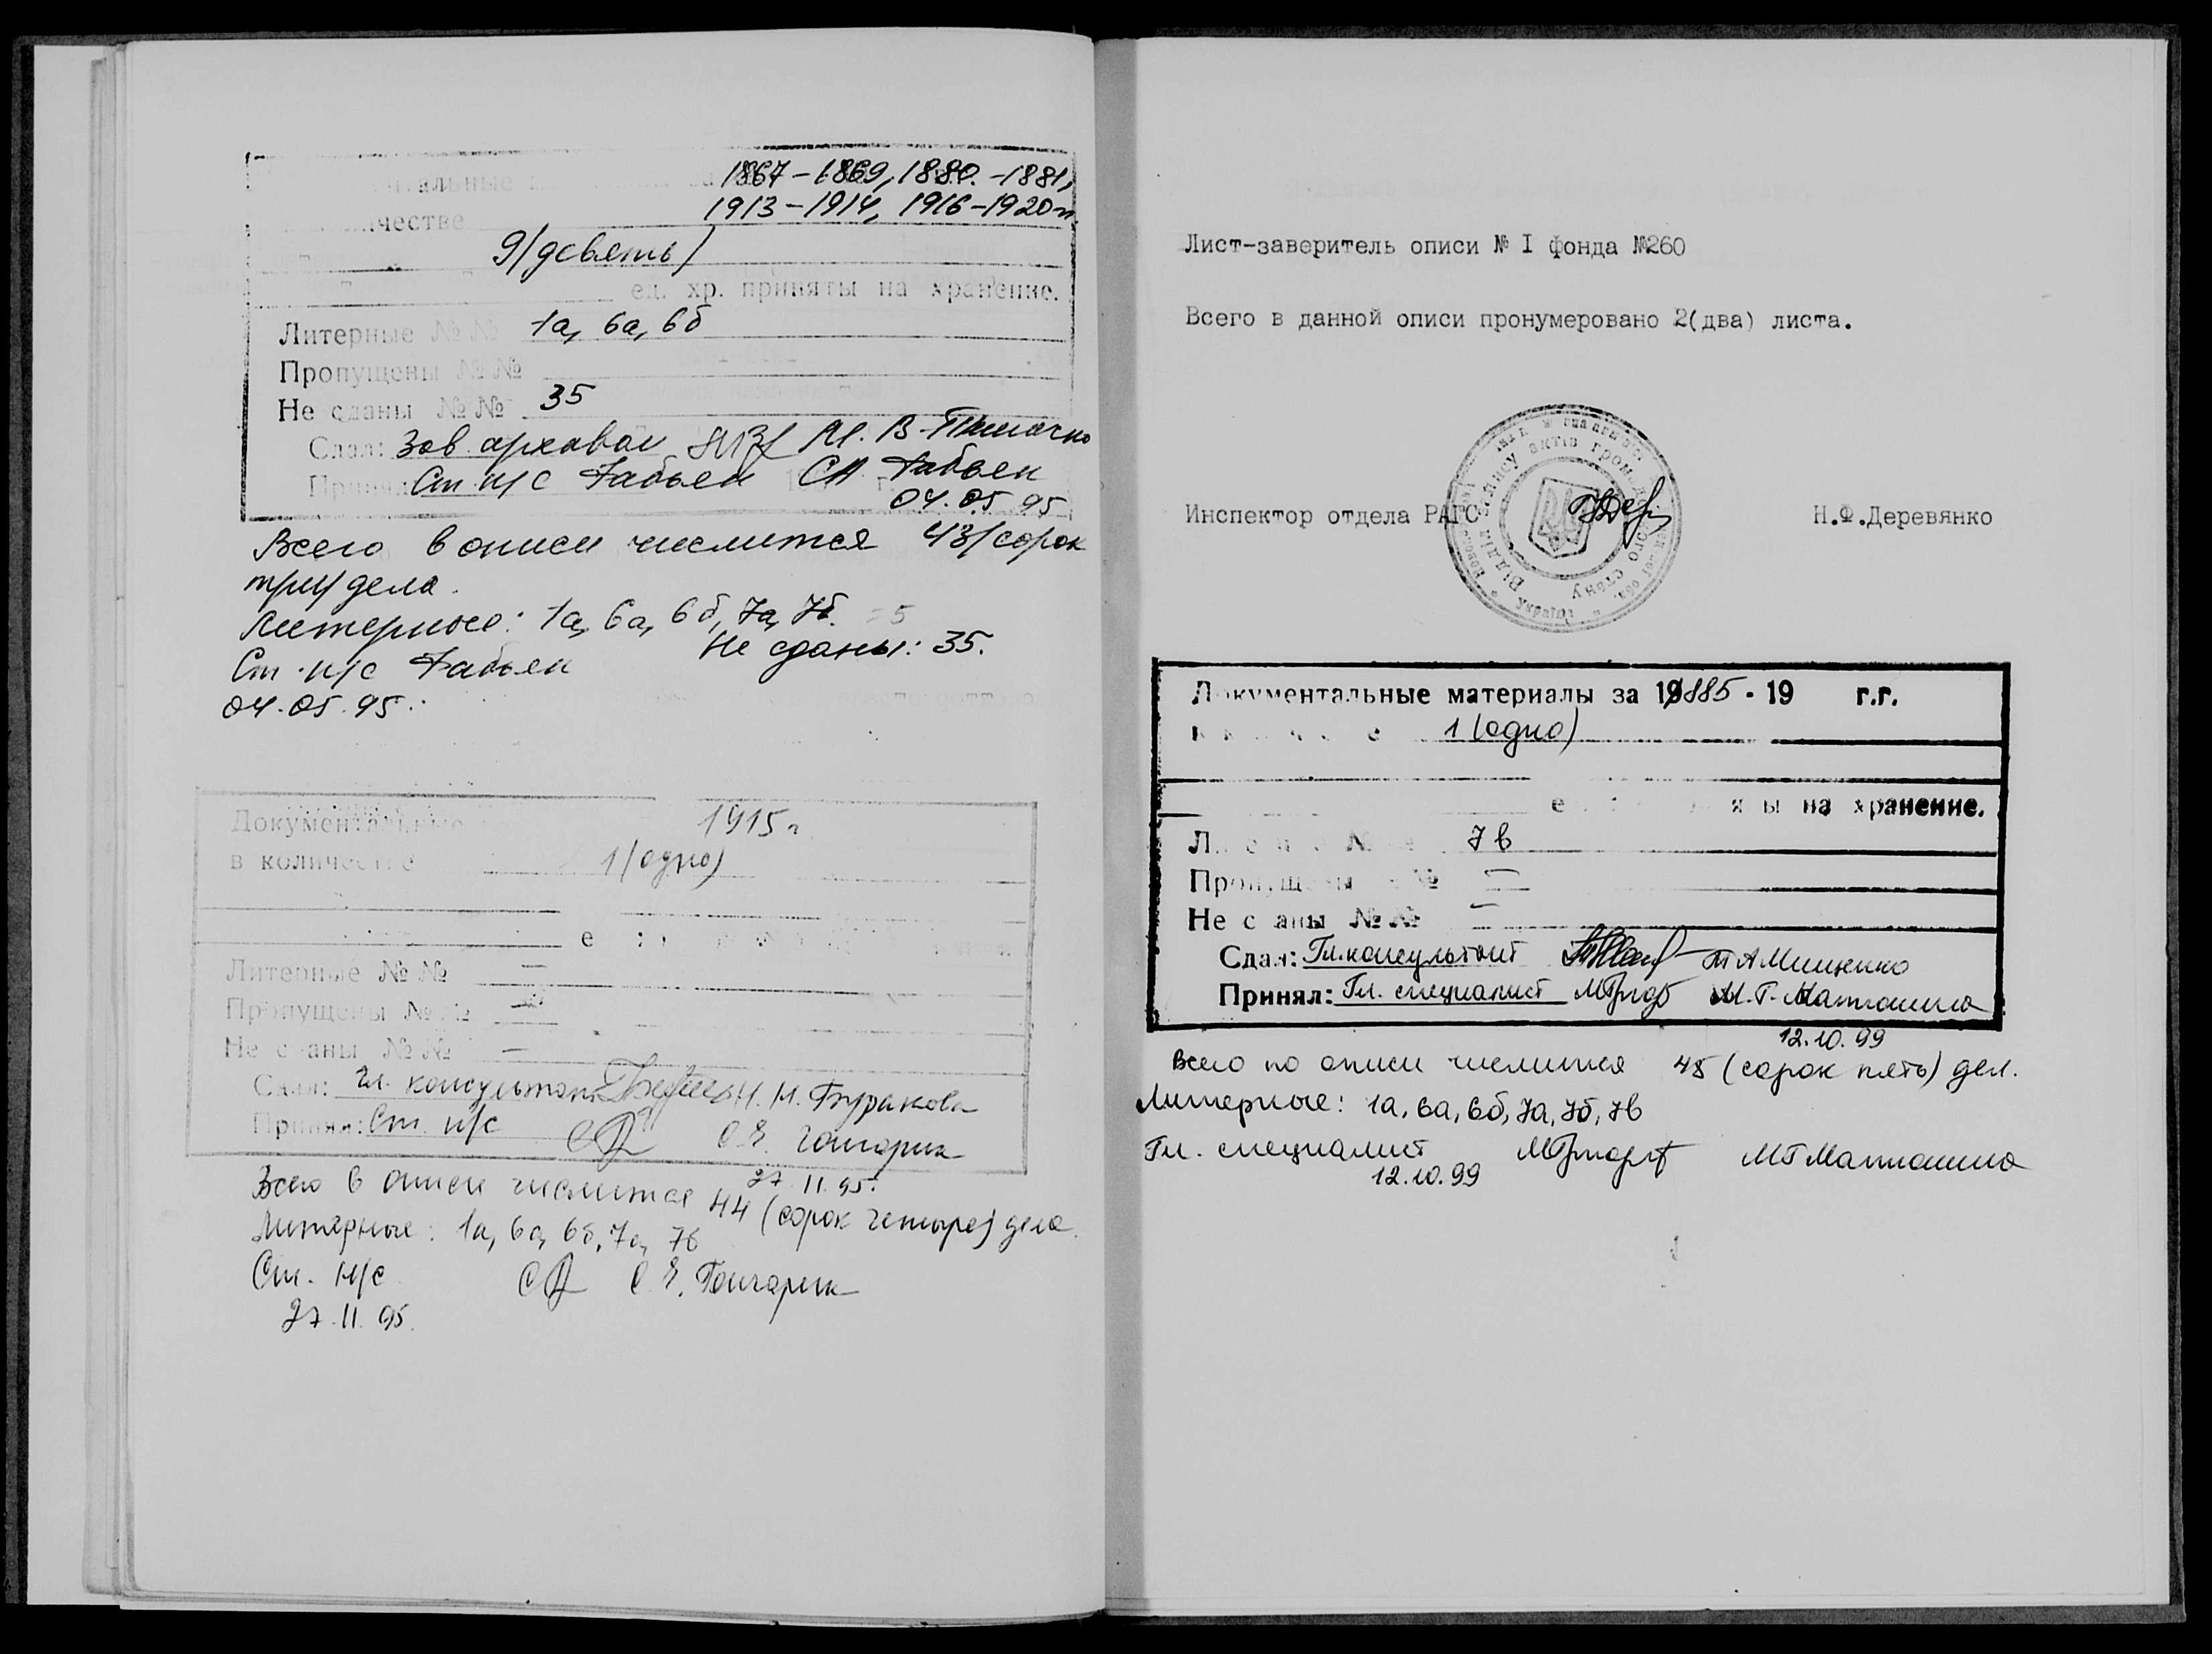 1867-1869, 1880.-1881,
1913-1914, 1916-1920 гг.
9 (девять)
ед. хр. приняты на хранение.
Литерные №№ 1а, 6а, 6б
Пропущены №№
Не сданы №№ 35
Сдал: Зав. архивом
Принял Ст. н/с Фабьен С.А. Фабьен
04.05.95
Всего в описи числится 43 (сорок
три) дела.
Литерные: 1а, 6а, 6б, 7а, 7б. = 5
Не сданы: 35.
Ст. н/с Фабьен
04.05.95.
Документальные 1915 г
в количестве 1 (одно)
Литерные №№ —
Пропущены №№ —
Не сданы №№ —
Сдал: Гл. консультант Н. Н. Буракова
Принял: Ст. н/с С. Е. Гончарик
27.11.95.
Всего в описи числится 44 (сорок четыре) дела.
Литерные: 1а, 6а, 6б, 7а, 7б
Ст. н/с С. Е. Гончарик
27.11.95.
Лист-заверитель описи № I фонда №260
Всего в данной описи пронумеровано 2(два) листа.
Инспектор отдела РАГС Н.Ф.Деревянко
Відділ запису актів громадянського стану
Документальные материалы за 19885 - 19 г.г.
1 (одно)
на хранение.
7в
Пропущены № —
Не сданы №№ —
Сдал: Гл. консультант Т А Мищенко
Принял: Гл. специалист М. Г. Матюшина
12.10.99
Всего по описи числится 45 (сорок пять) дел.
Литерные: 1а, 6а, 6б, 7а, 7б, 7в
Гл. специалист М Г Матюшина
12.10.99